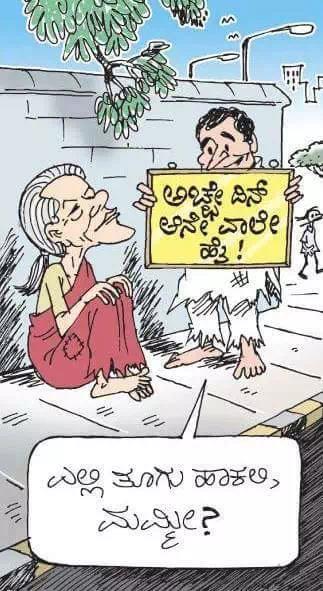 ಅಚ್ಛೇ ದಿನ್
ಆನೇ ವಾಲೇ
ಹೈ !
ಎಲ್ಲಿ ತೂಗು ಹಾಕಲಿ,
ಮಮ್ಮೀ?